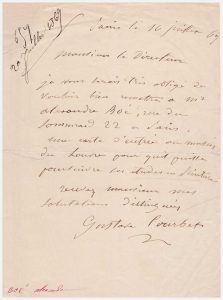 659
20 juillet 1869
Paris le 16 juillet 69
Monsieur le Directeur
je vous serais très obligé de
vouloir bien remettre à Mr
Alexandre Boé, rue du
Sommerard 22 à Paris,
une carte d'entrée au musée
du Louvre pour qu'il puisse
poursuivre ses études en peinture
recevez monsieur mes
salutations distinguées
Gustave Courbet
BOÉ